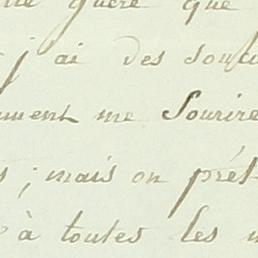 guère que
j'ai des souv
ment me Sourire
; mais on prét
à toutes les